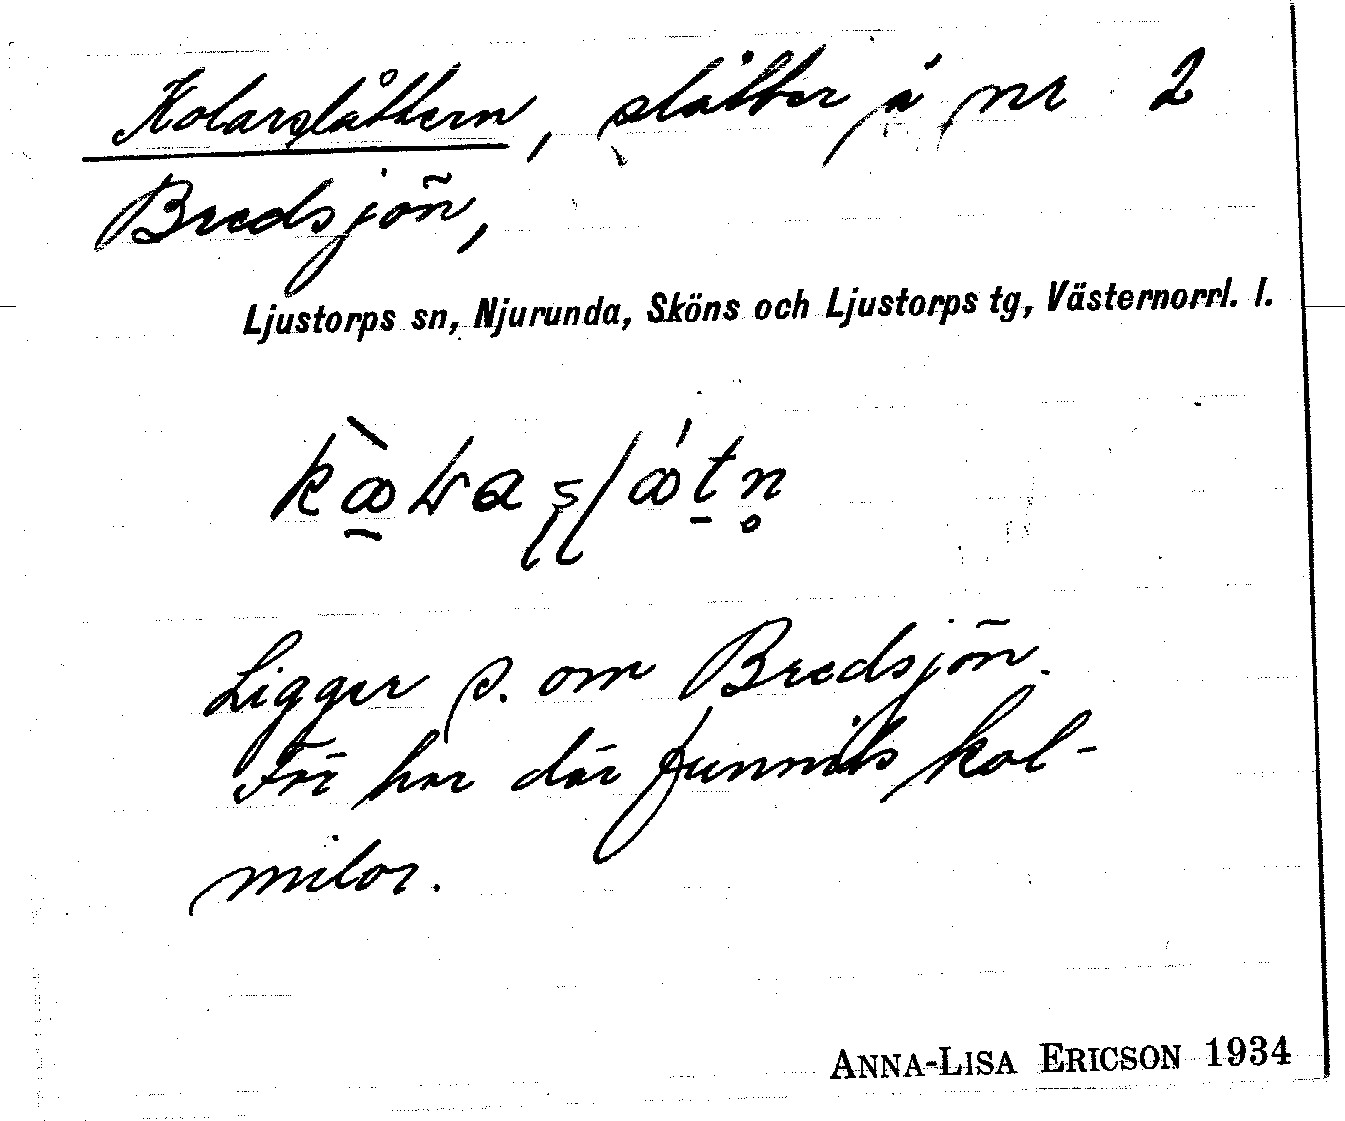 Kolarslåttern, slåtter å nr 2
Bredsjön,
Ljustorps sn, Njurunda, Sköns och Ljustorps tg, Västernorrl. l.
Ligger s. om Bredsjön.
Förr har där funnits kol-
milor.
ANNA-LISA ERICSON 1934